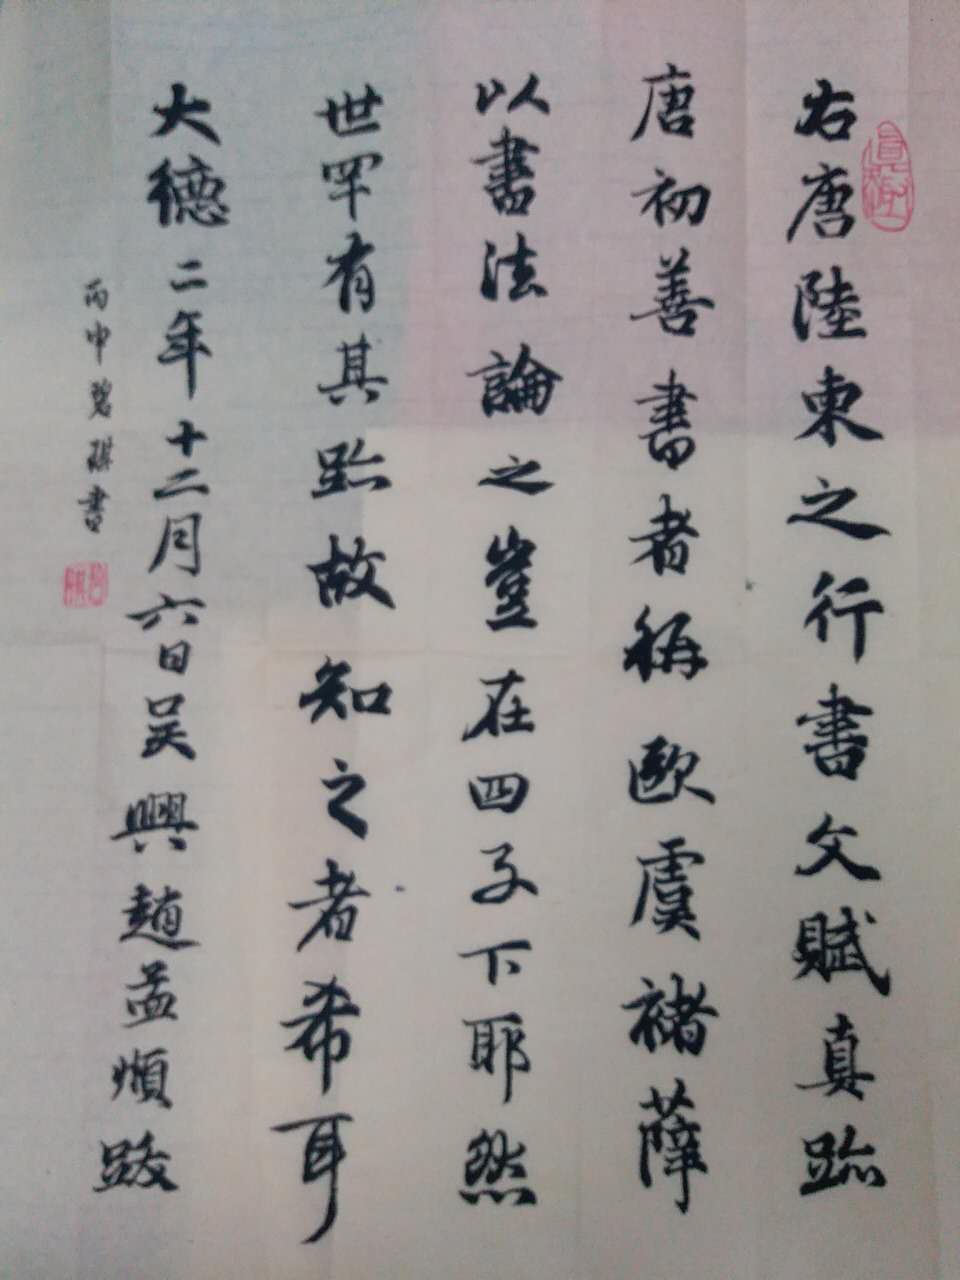 右唐陸東之行書文賦真跡
唐初善書者稱歐虞褚薛
以書法論之豈在四子下耶然
世罕有其跡故知之者希耳
大德二年十二月六日吴興趙孟頫跋
丙申碧琪書